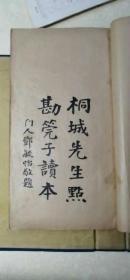 桐城先生點
勘筦子讀本
門人鄧毓怡敬題